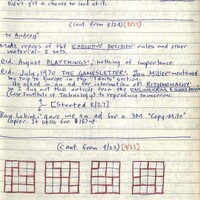 didn't get a chance to look at it.
(cont. from 8/24) [8/27]
to Audrey.
Made repros of the EXECUTIVE DECISION rules and other
materials, 2 sets.
Rcd. August PLAYTHINGS; nothing of importance.
Rcd. July, 1970 THE GAMESLETTER. Don Miller mentioned
my trip to Europe in the
He asked in an ad for information on RITHMOMACHY
So I dug out this article from the ENGINEERING &
(Cal Institute of Technology) to reproduce tomorrow.
[Started 8/27]
Ray Labick gave me an ad for a 3M "Copy-Mite"
Copier. It sells for
(cont. from 9/23) [9/23]